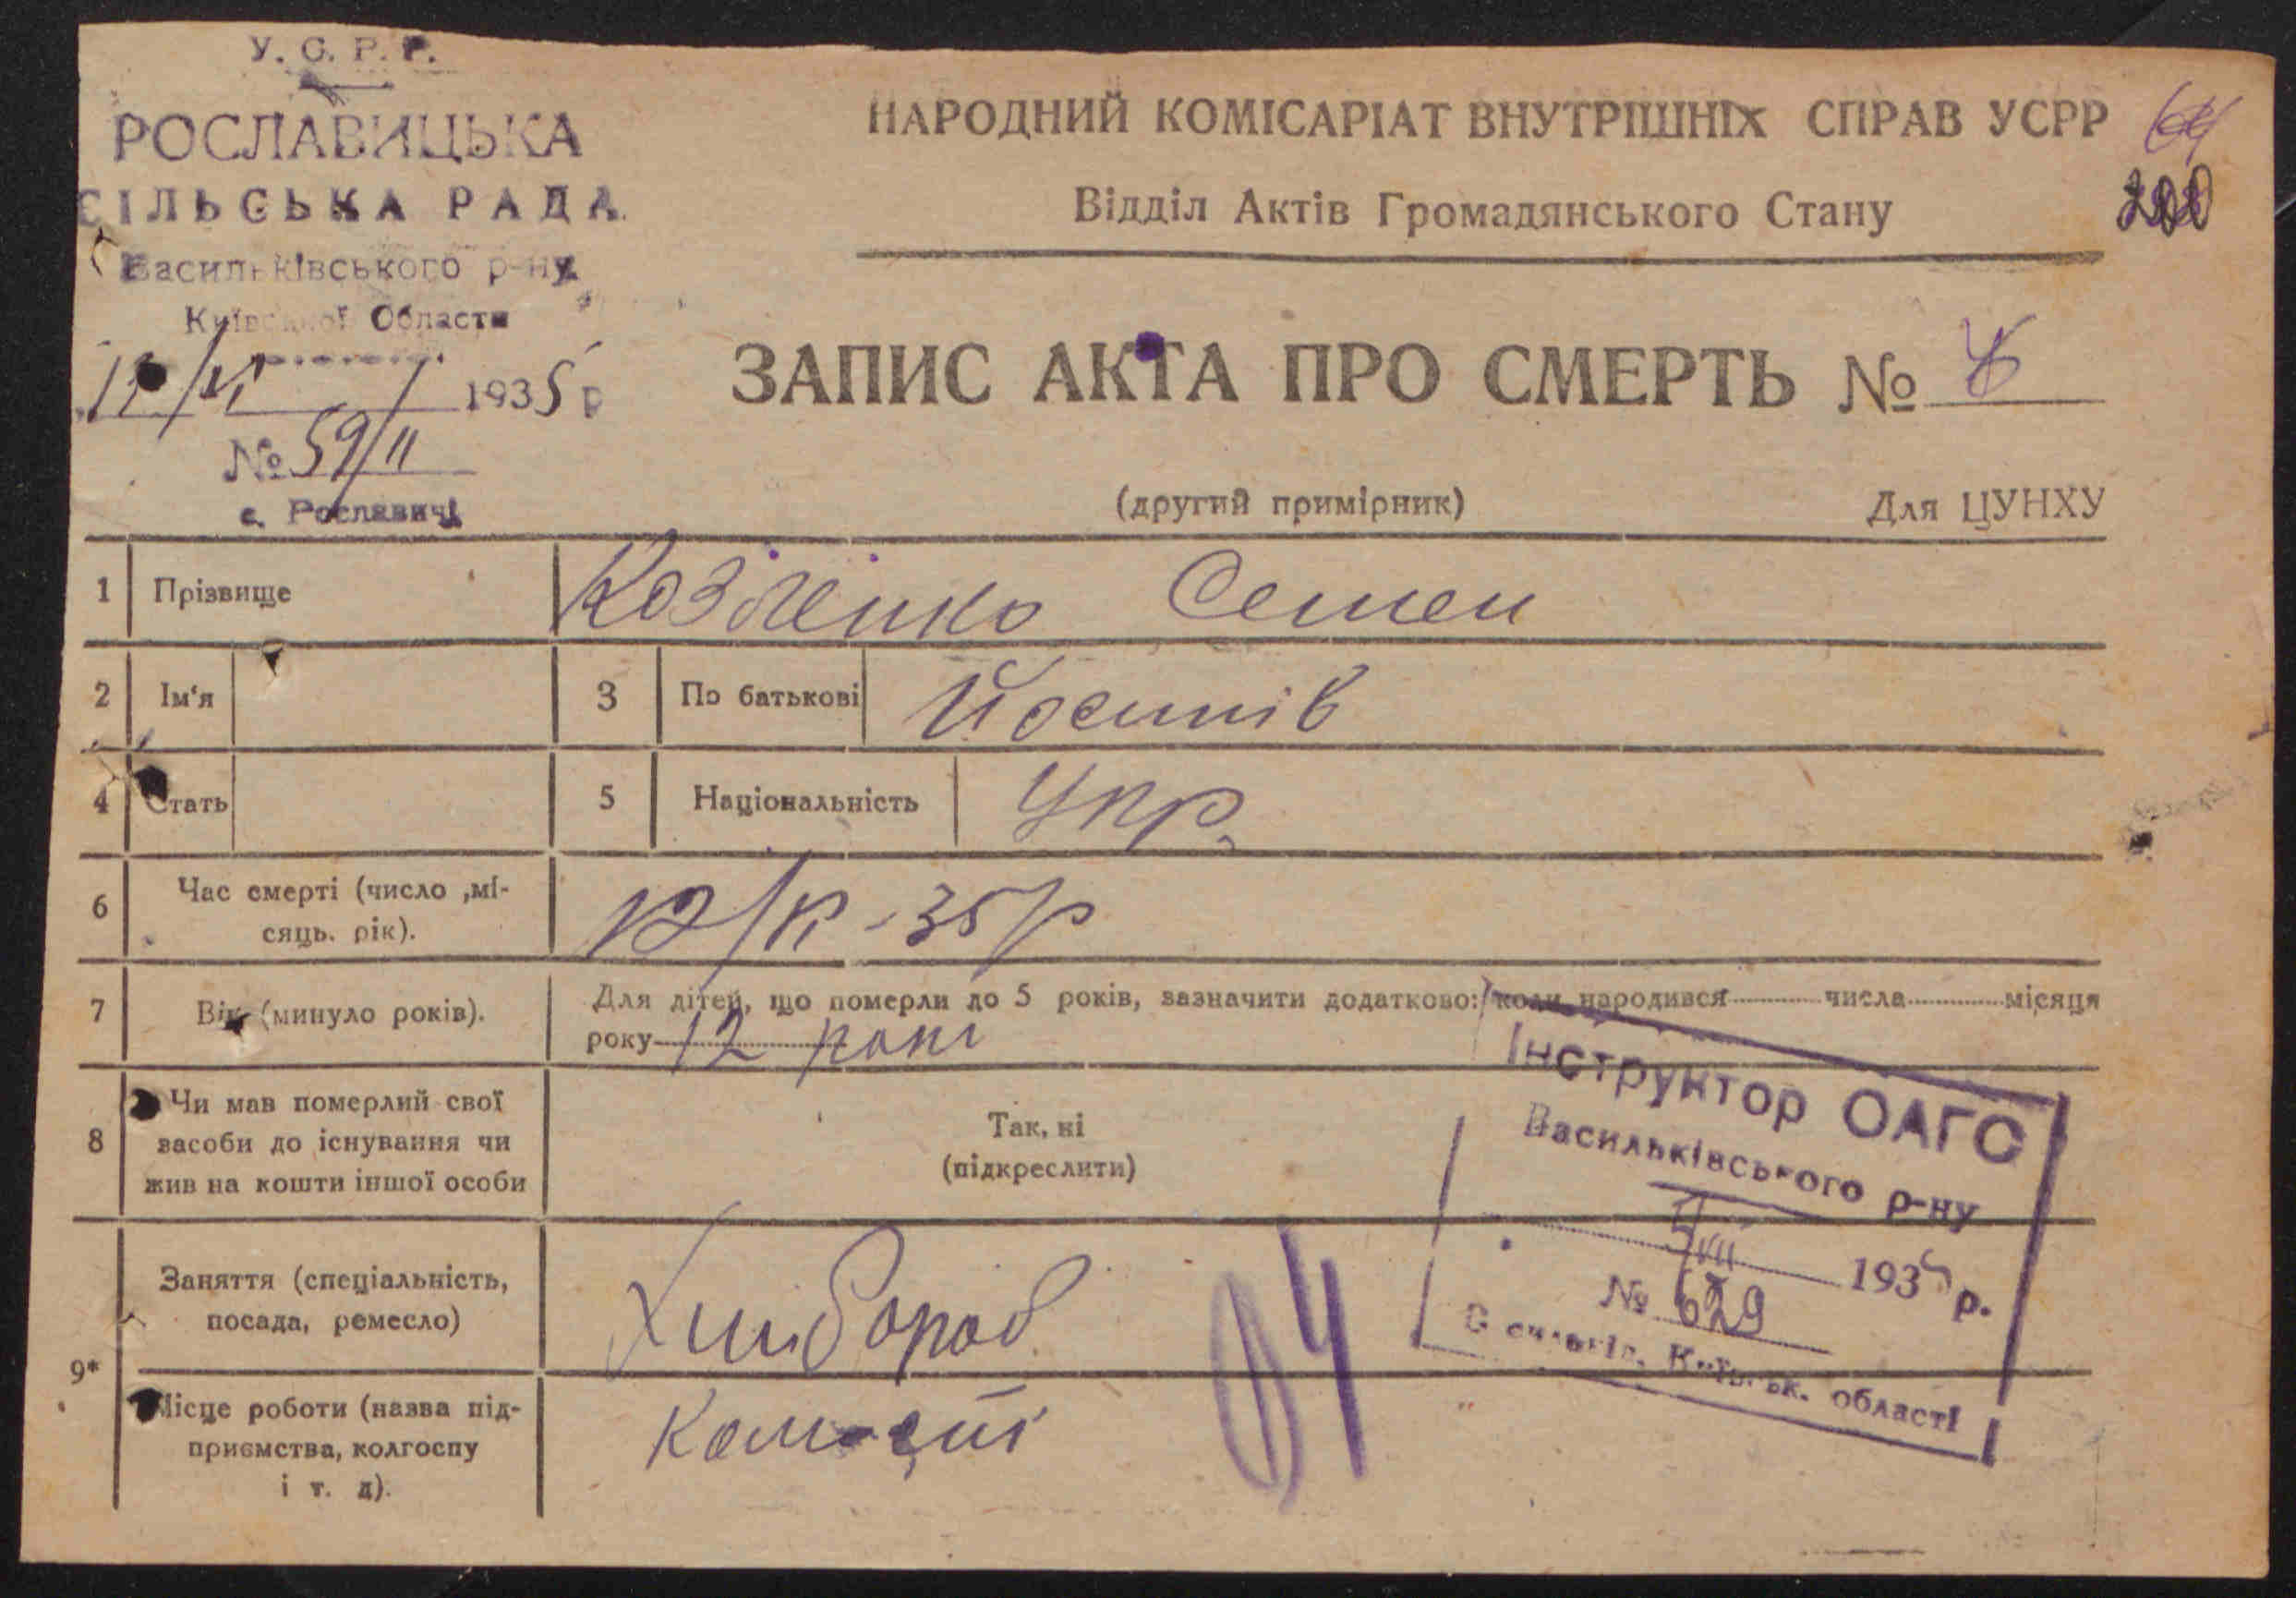 У. С. Р. Р.
РОСЛАВИЦЬКА
СІЛЬСЬКА РАДА
Васильківського р-ну
Київської Области
1935 р
№ 59/11
с. Рославичі
НАРОДНИЙ КОМІСАРІАТ ВНУТРІШНІХ СПРАВ УСРР
200
Відділ Актів Громадянського Стану
ЗАПИС АКТА ПРО СМЕРТЬ №
(другий примірник)
Для ЦУНХУ
1 Прізвище Козленко Семен
2 Ім'я 3 По батькові Йосипів
4 Стать 5 Національність Укр.
6 Час смерті (число ,мі-
сяць. рік).
35 р
7 Вік (минуло років). Для дітей, що померли до 5 років, зазначити додатково: коли народився числа місяця
року 12 років
8 Чи мав померлий свої
засоби до існування чи
жив на кошти іншої особи
Так, ні
(підкреслити)
Інструктор ОАГС
Васильківського р-ну
5/VII 1935 р.
№ 629
Київськ. області
9* Заняття (спеціальність,
посада, ремесло)
Хлібороб
Місце роботи (назва під-
приємства, колгоспу
і т. д).
04